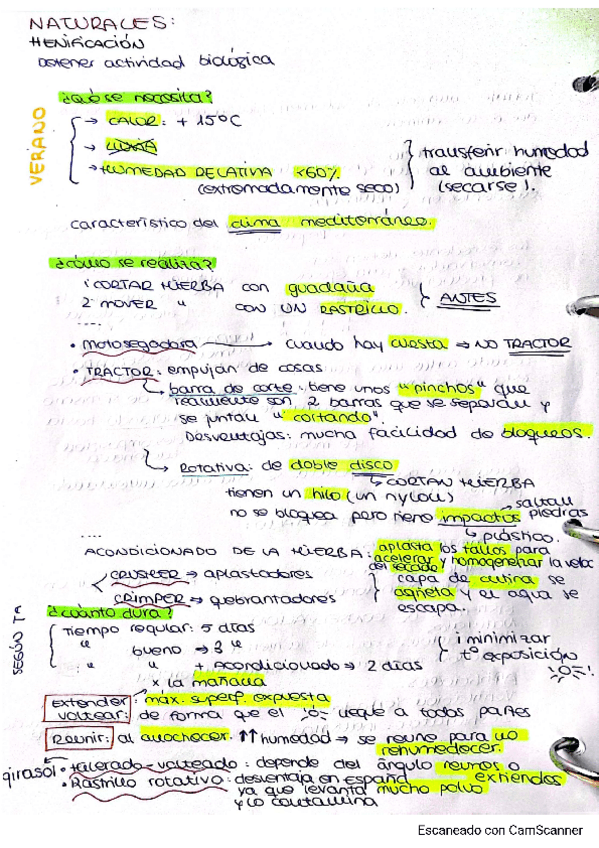 NATURALES:
HENIFICACIÓN
obtener actividad biológica
¿qué se necesita?
VERANO
→ CALOR: + 15ºC
→ LLUVIA
→ HUMEDAD RELATIVA <60%
(extremadamente seco)
transferir humedad
al ambiente
(secarse).
característico del clima mediterráneo.
¿cómo se realiza?
1º CORTAR HIERBA con guadaña
2º MOVER " CON UN RASTRILLO.
ANTES
....
• motosegadora → cuando hay cuesta → NO TRACTOR
• TRACTOR: empujan de cosas
↳ barra de corte: tiene unos "pinchos" que
realmente son 2 barras que se separan y
se juntan "cortando".
Desventajas: mucha facilidad de bloqueos.
↳ Rotativa: de doble disco
↳ CORTAN HIERBA
tienen un hilo (un nylon)
no se bloquea pero tiene impactos → saltan piedras
↳ plástico.
....
ACONDICIONADO DE LA HIERBA: aplasta los tallos para
acelerar y homogeneizar la veloc
del secado
CRUSHER → aplastadores
CRIMPER → quebrantadores
capa de cutina se
agrieta y el agua se
escapa.
¿cuánto dura?
SEGÚN Tª
Tiempo regular: 5 días
" bueno → 3 "
" " + Acondicionado → 2 días
x la mañana
¡ minimizar
tº exposición
!
Extender máx. superf. expuesta
voltear: de forma que el llegue a todas partes
Reunir: al anochecer. ↑↑ humedad → se reúne para no
rehumedecer.
girasol • hilerado-volteado: depende del ángulo reúnes o
extiendes
• Rastrillo rotativo: desventaja en España
ya que levanta mucho polvo
y lo contamina
Escaneado con CamScanner